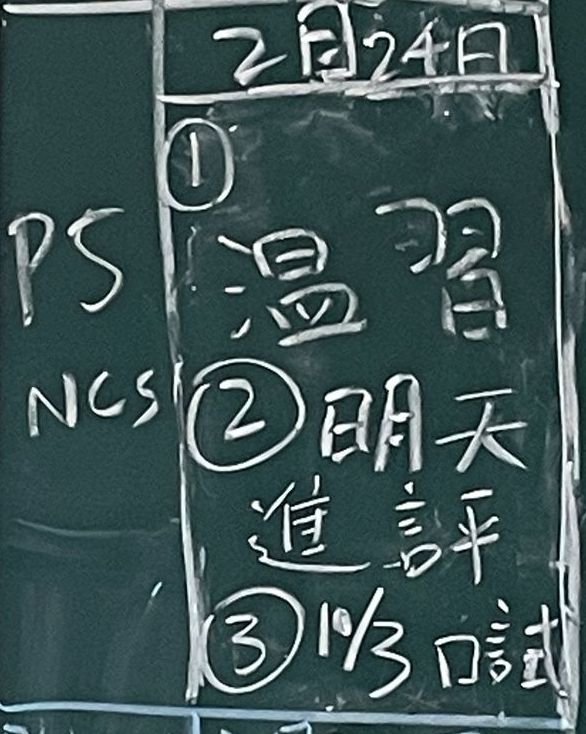 2月24日
①
PS
温習
NCS
②明天
進評
③10/3口試